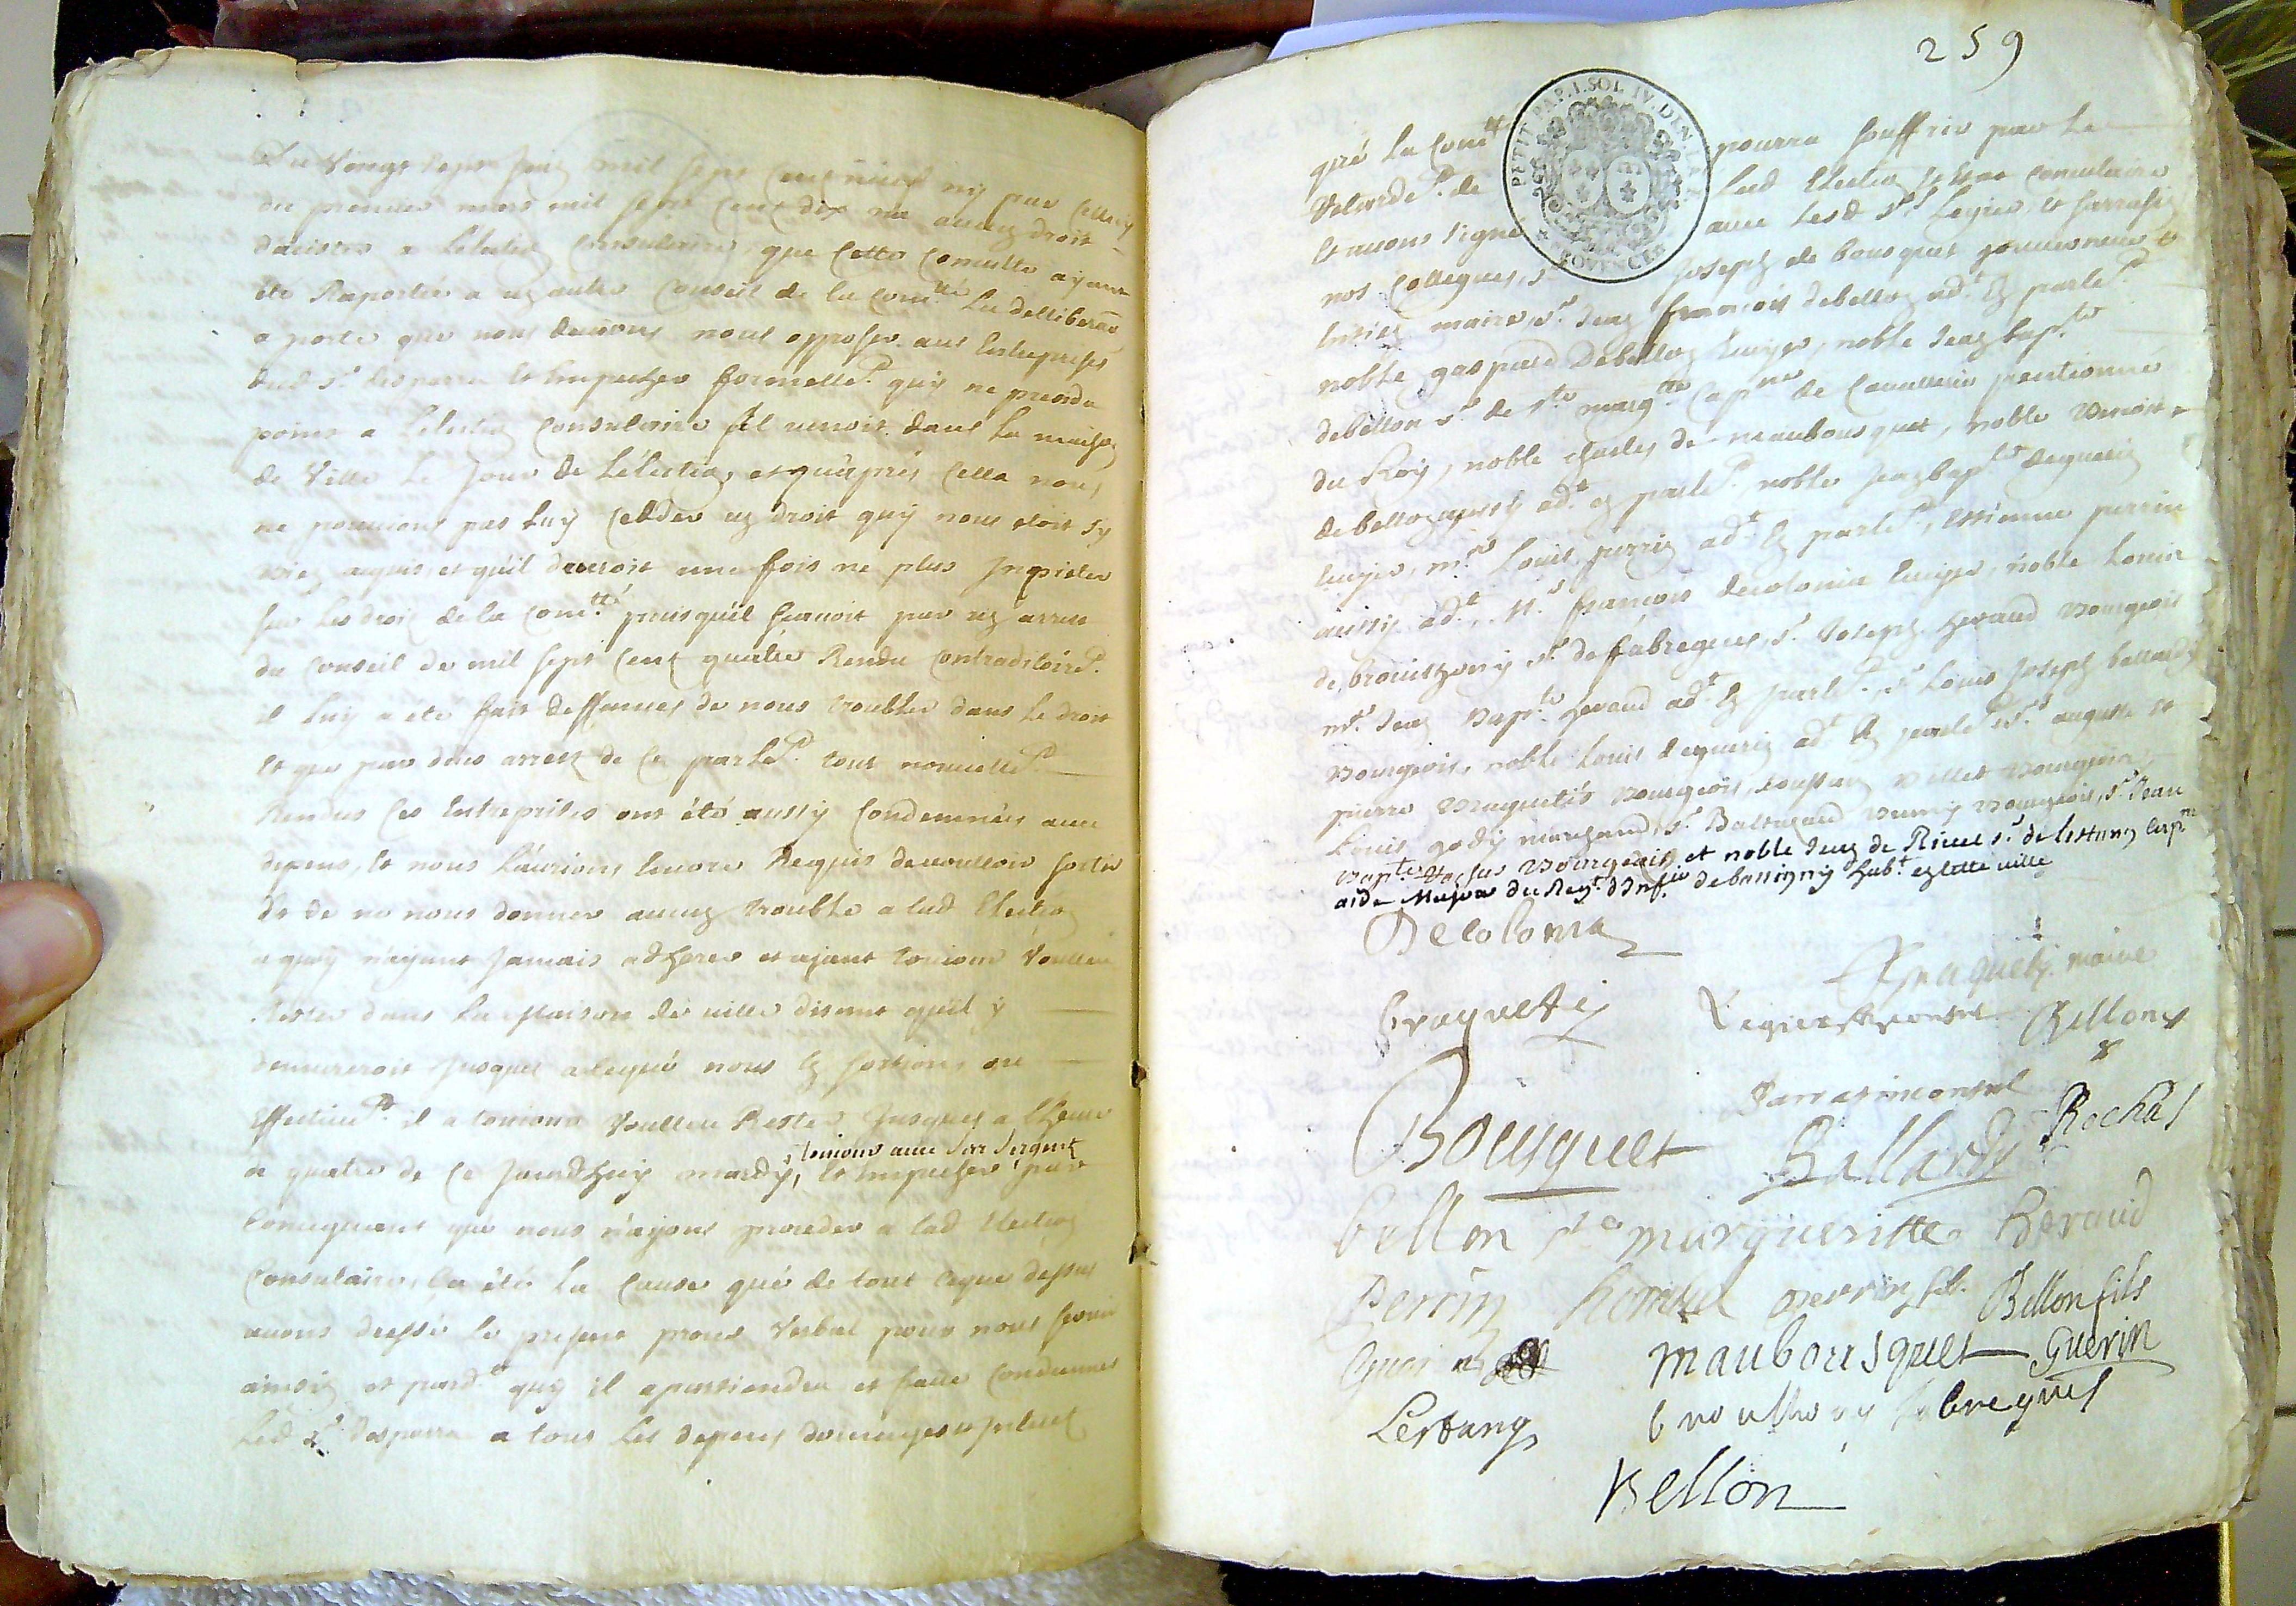 Du Vingt sept Juin mil sept cent neuf ny par celluy
du premier mars mil sept cent dix na aucun droit
dacister a Lelection Consulaire, que Cette Consulte ayant
été Raportée a un autre Conseil de la Com.tté La delliberaon
a porté que nous devions nous opposer aux Entreprises
dud S.r desparra Et Empecher formelle.t quil ne prendra
point a Lélection Consulaire sil venoit dans la maison
de Ville Le Jour de Lélection, et qu'après Cella nous
ne pouvions pas Luy Cedder un droit quy nous étoit sy
bien aquis, et qu'il devroit une fois ne plus Inpieter
sur les droits de la Com.tté puisqu'il sçavoit par un arrest
du Conseil de mil sept Cent quatre Rendu Contradictoire.t
il Luy a été fait deffences de nous troubler dans Le droit
Et que par deux arrests de Ce parle.t tout nouvelle.t
Rendus Ces Entreprises ont été aussy Condemnées avec
depens, Et nous L'aurions Encore Requis de vouloir sortir
Et de ne nous donner aucun trouble a lad Election
a quoy n'ayant Jamais adherer et ajant toujour Voulleu
Rester dans La Maison de ville disant qu'il y
demureroit Jusques aceque nous En sortions, ou
Effective.t il a toujour Voulleu Rester Jusques a lheure
toujour avec son sergent
de quatre de Ce Jourdhuy mardy, Et Empecher par
Consequent que nous n'ayons proceder a lad Election
Consulaire, Ca été La Cause que de tout ceque dessus
avons dressé Le present procès Verbal pour nous servir
ainsin et pard.t quy il apartiendra et faire Condamner
Led S.r desparra a tous Les depens domages et Interests
259
PETIT PAP. 1. SOL. IV. DEN. LA F.
PROVENCE
que La Com.tté pourra souffrir par Le
Retarde.t de Lad Election Et Etat Consulaire
Et avons signé avec Lesd S.rs Legier, Et sarrasin
nos Collegues, S.r Joseph de bousquet gouverneur Et
Ensien maire, S.r Jean francois debellon ad.t En parle.t
noble gaspard Debellon Ecuyer, noble Jean bap.te
debellon S.r de S.te marg.tte Cap.ne de Cavallerie pentionné
du Roy, noble charles de maubousquet, noble
debellon aussy ad.t en parle.t, noble Jean bap.te deguerin
Ecuyer, m.re Louis perrin ad.t En parle.t, Estienne perrin
aussy ad.t, N.e francois decolonia Ecuyer, noble Louis
de brouilhony S.r de fabregues, S.r Joseph heraud Bourgeois
m.re Jean Bap.te heraud ad.t En parle.t, S.r Louis Joseph ballardy
Bourgeois, noble Louis deguerin ad.t En parle.t S.rs auguste Et
pierre Braquetis Bourgeois, toussan Vellet Bourgeois,
Louis gody marchand, S.r Baltazard Bourgeois, S.r Jean
Bap.te Rochas Bourgeois et noble Jean de Ricus S.r de Lestang Cap.ne
aide Major du Reg.t dInf.rie de bassigny hab.t en cette ville
Decolonia
Braquety maire
Braquetij
Legier consul
Bellon
Sarrasin consul
Bousquet
Ballardy
Rochas
bellon s.te margueritte
Heraud
Perrin
heraud
perrin fils
Bellon fils
Maubousquet
Guerin
Lestang
brouilhony fabregues
Bellon